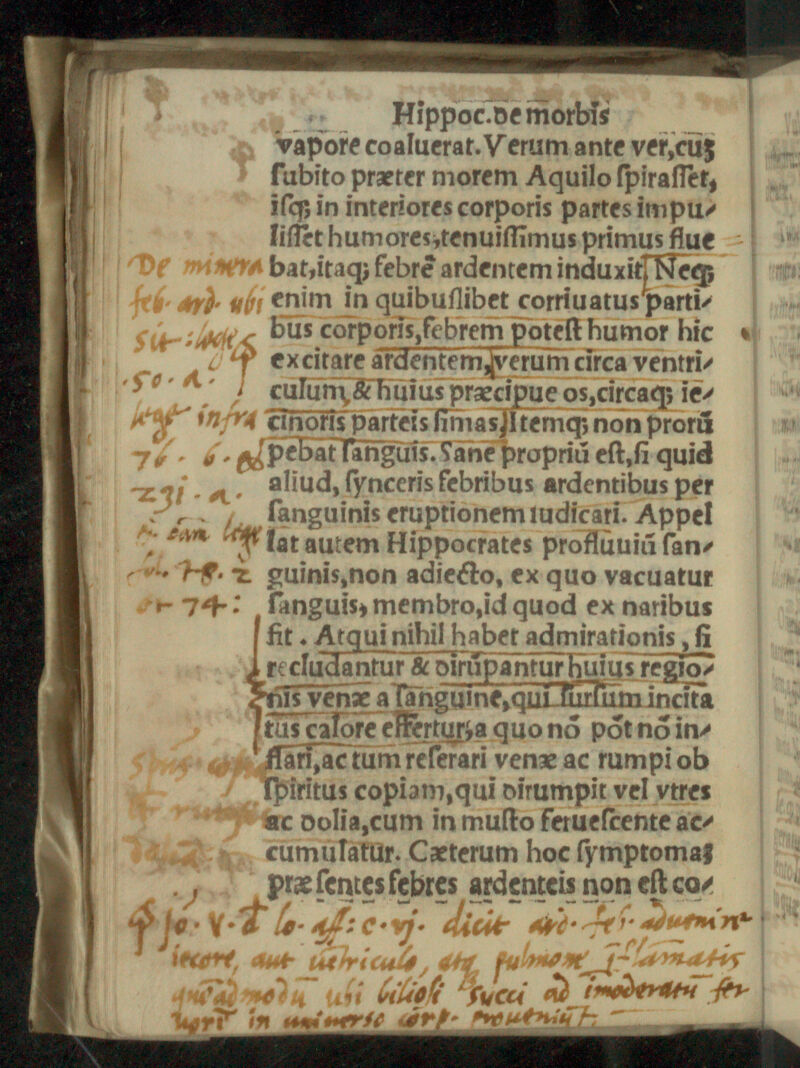 Hippoc. De morbis
vapore coaluerat. Verum ante ver, cuȝ
ſubito præter morem Aquilo ſpiraſſet,
iſqꝫ in interiores corporis partes impu⸗
liſſet humores, tenuiſſimus primus flue
De minera
bat, itaqꝫ febrē ardentem induxit[ Neqꝫ
feb. ard. ubi
enim in quibuſlibet corriuatus parti⸗
sit: lege
bus corporis, febrem poteſt humor hic
50. a.
excitare ardentem, verum circa ventri⸗
culum, & huius præcipue os, circaqꝫ ie⸗
lege infra
cinoris parteis ſimas] Itemqꝫ non prorū
76. 6.
pebat ſanguis. Sane propriū eſt, ſi quid
231. a.
aliud, ſynceris febribus ardentibus per
ſanguinis eruptionem iudicari. Appel
lat autem Hippocrates profluuiū ſan⸗
guinis, non adiecto, ex quo vacuatur
74:
ſanguis, membro, id quod ex naribus
fit. Atqui nihil habet admirationis, ſi
recludantur & dirūpantur huius regio⸗
nis venæ a ſanguine, qui ſurſum incita
tus calore effertur, a quo nō pōt nō in⸗
flari, ac tum reſerari venæ ac rumpi ob
ſpiritus copiam, qui dirumpit vel vtres
ac dolia, cum in muſto ferueſcente ac⸗
cumulatur. Cæterum hoc ſymptomaȝ
præſentes febres ardenteis non eſt co⸗
lo. aff: c. vj. dicit ard. feb. aduenire
iecore, aut uētriculo, atq pulmone īflamatis
queadmodū ubi bilioſi succi ad imoderatū fer
uorē in uniuerso corp. proueniūt.